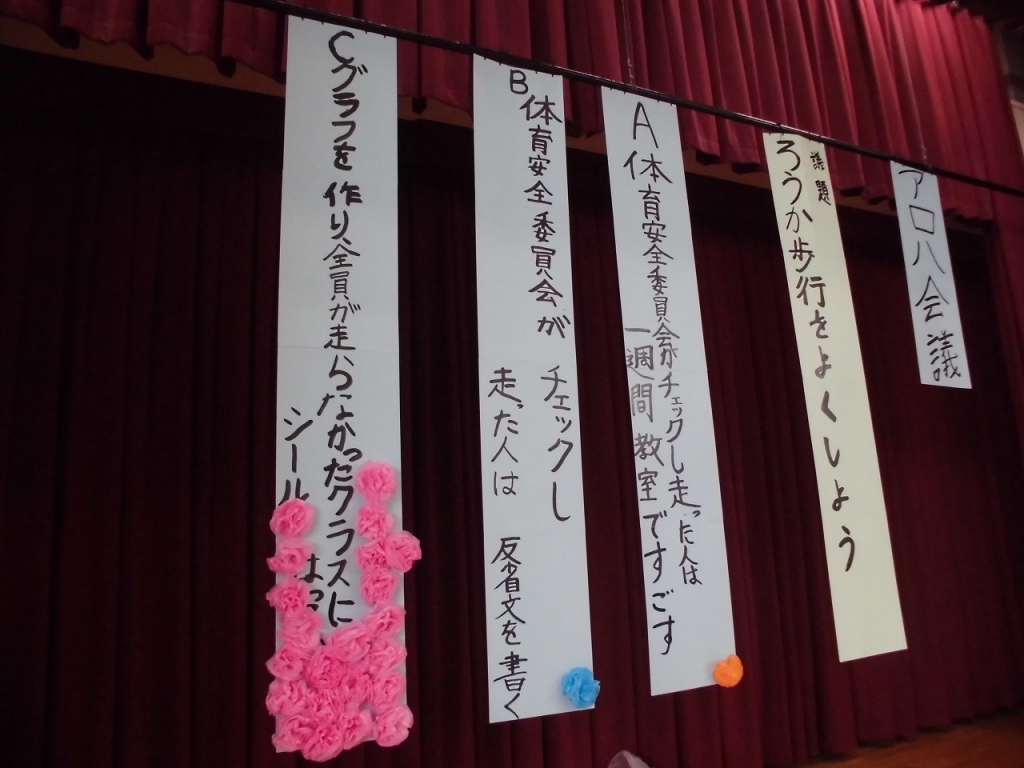 アロハ会議
議題
ろうか歩行をよくしよう
A 体育安全委員会がチェックし走った人は
一週間教室ですごす
B 体育安全委員会がチェックし
走った人は 反省文を書く
Cグラフを作り全員が走らなかったクラスに
シール